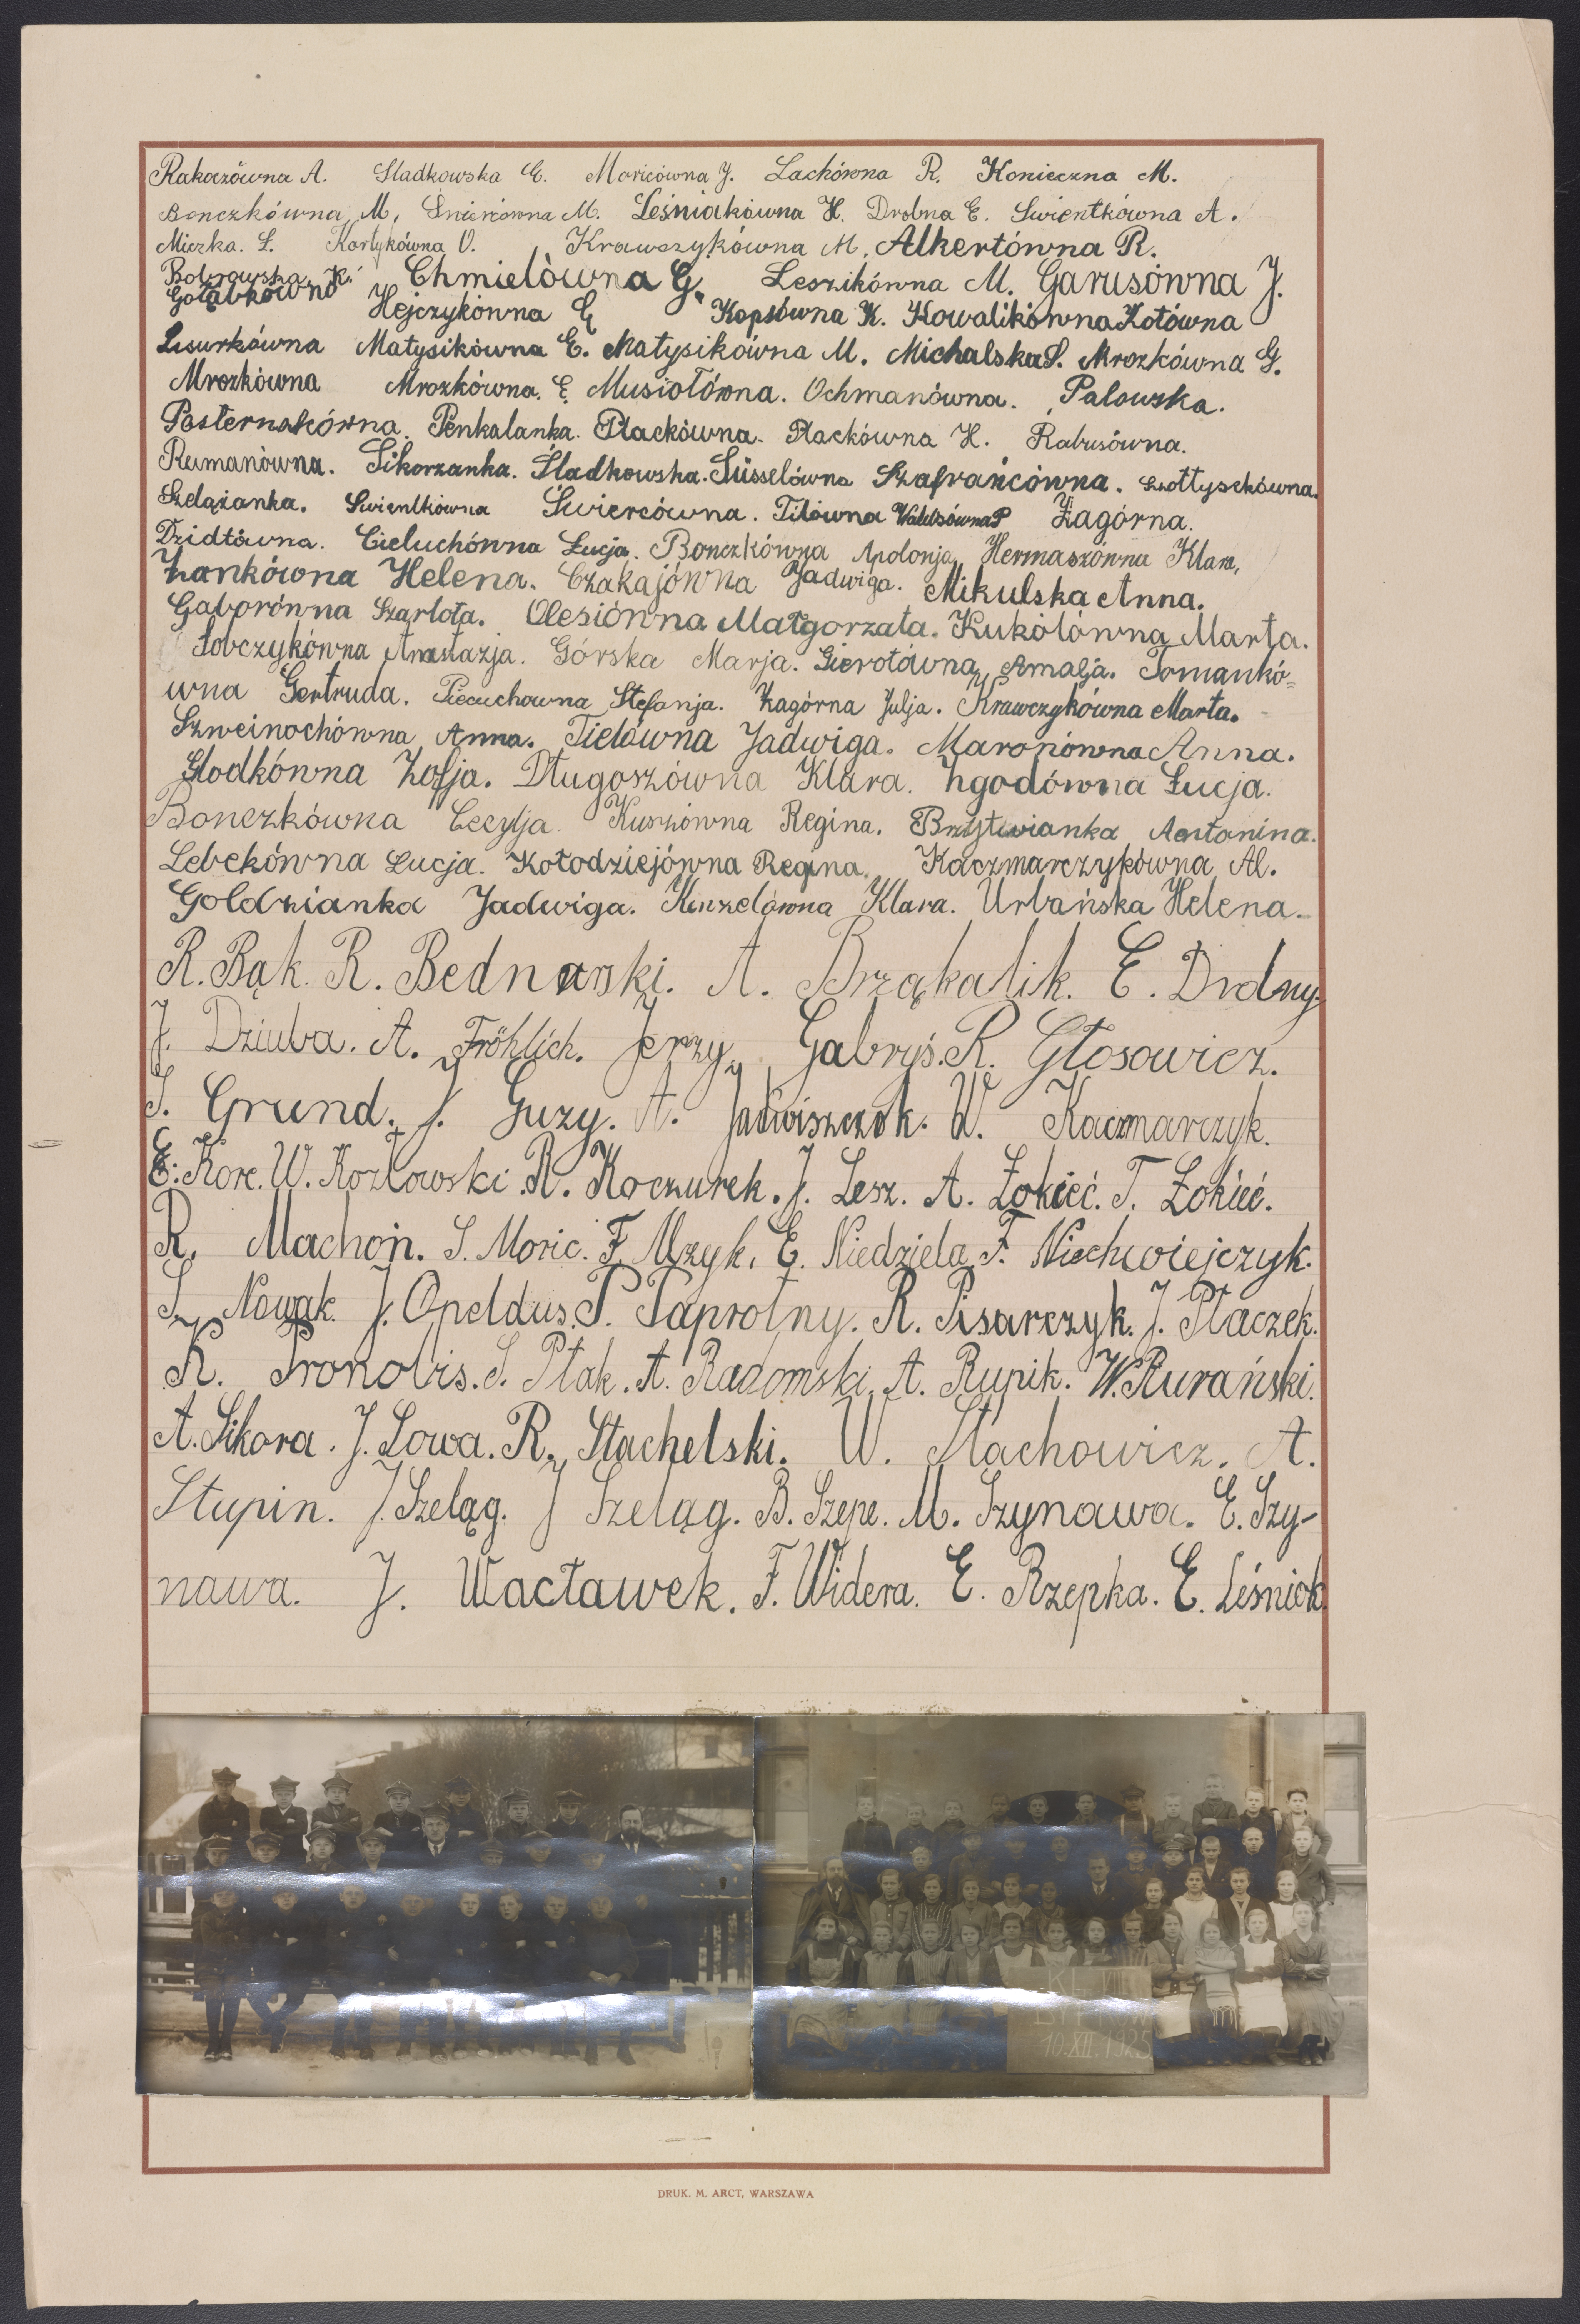 Rakazówna A. Sladkowska E. Moricówna J. Lachówna R. Konieczna M.
Bonczkówna, M, Śniercówna M. Leśniakówna H. Drobna E. Swientkówna A.
Miczka. Ł. Kortykówna O. Krawszykówna M, Alkertówna R.
Bobrowska, K. Chmielówna G. Leszikówna M. Garusówna J.
Gołąbkówna Hejczykówna E Kopsówna K. Kowalikówna Kotówna
Lisurkówna Matysikówna E. Matysikówna M. Michalska S. Mrozkówna G.
Mrozkówna Mrozkówna. E. Musiołówna. Ochmanówna. Palowska.
Pasternakówna. Penkalanka. Płackówna. Płackówna H. Rabusówna.
Rumanówna. Sikorzanka. Śladkowska. Süsselówna Szafrańcówna. Szołtysekówna.
Szelązanka. Swientkówna Świercówna. Tilówna P Zagórna.
Dzidtówna. Cieluchówna Łucja. Bonczkówna Apolonja, Hermaszówna Klara,
Zankówna Helena. Czakajówna Jadwiga. Mikulska Anna.
Gaborówna Szarlota. Olesiówna Małgorzata. Kukółówna Marta.
Sobczykówna Anastazja. Górska Marja. Gierotówna, Amalja. Tomankó=
wna Gertruda. Piecuchowna Stefanja. Zagórna Julja. Krawczykówna Marta.
Szweinochówna Anna. Tielówna Jadwiga. Maronówna Anna.
Głodkówna Zofja. Długoszówna Klara. Zgodówna Łucja.
Bonczkówna Cecylja. Kuszówna Regina. Brzytwianka Antonina.
Lebekówna Lucja. Kołodziejówna Regina. Kaczmarczykówna Al.
Goldzianka Jadwiga. Kinzelówna Klara. Urbańska Helena.
R. Bąk. R. Bednarski. A. Brząkalik. E. Drdny.
J. Dziuba. A. Fröhlich. Jerzy Gabryś. R. Głosowicz.
S. Grund. J. Guzy. A. Jadwiszczok. W. Kaczmarczyk.
E. Korc. W. Kozłowski. R. Koczurek. J. Lesz. A. Łokieć. T. Łokieć.
R. Machoń. S. Moric. F. Mzyk. E. Niedziela. F. Niechwiejczyk.
S. Nowak. J. Opeldus. P. Paprotny. R. Pisarczyk. J. Płaczek.
K. Pronobis. S. Ptak. A. Radomski. A. Rupik. W. Rurański.
A. Sikora. J. Sowa. R. Stachelski. W. Stachowicz. A.
Stupin. J. Szeląg. J Szeląg. B. Szepe. M. Szynawa. E. Szy-
nawa. J. Wacławek. F. Widera. E. Rzepka. E. Leśniok.
10.XII.1925
DRUK. M. ARCT, WARSZAWA